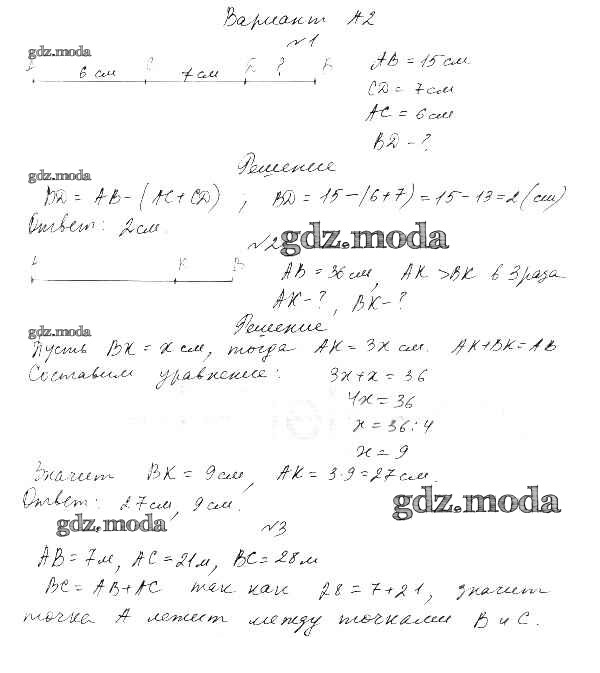 Вариант А2
№1
gdz.moda
A C D B
6 см 7 см ?
AB = 15 см
CD = 7 см
AC = 6 см
BD - ?
gdz.moda
Решение
BD = AB - (AC + CD) ; BD = 15 - (6+7) = 15 - 13 = 2 (см)
Ответ: 2 см.
№2
gdz.moda
A K B
AB = 36 см, AK > BK в 3 раза
AK - ?, BK - ?
Решение
gdz.moda
Пусть BK = x см, тогда AK = 3x см. AK+BK = AB
Составим уравнение: 3x + x = 36
4x = 36
x = 36 : 4
x = 9
Значит BK = 9 см, AK = 3·9 = 27 см.
Ответ: 27 см, 9 см.
gdz.moda
gdz.moda
№3
AB = 7 м, AC = 21 м, BC = 28 м
BC = AB + AC так как 28 = 7 + 21, значит
точка A лежит между точками B и C.